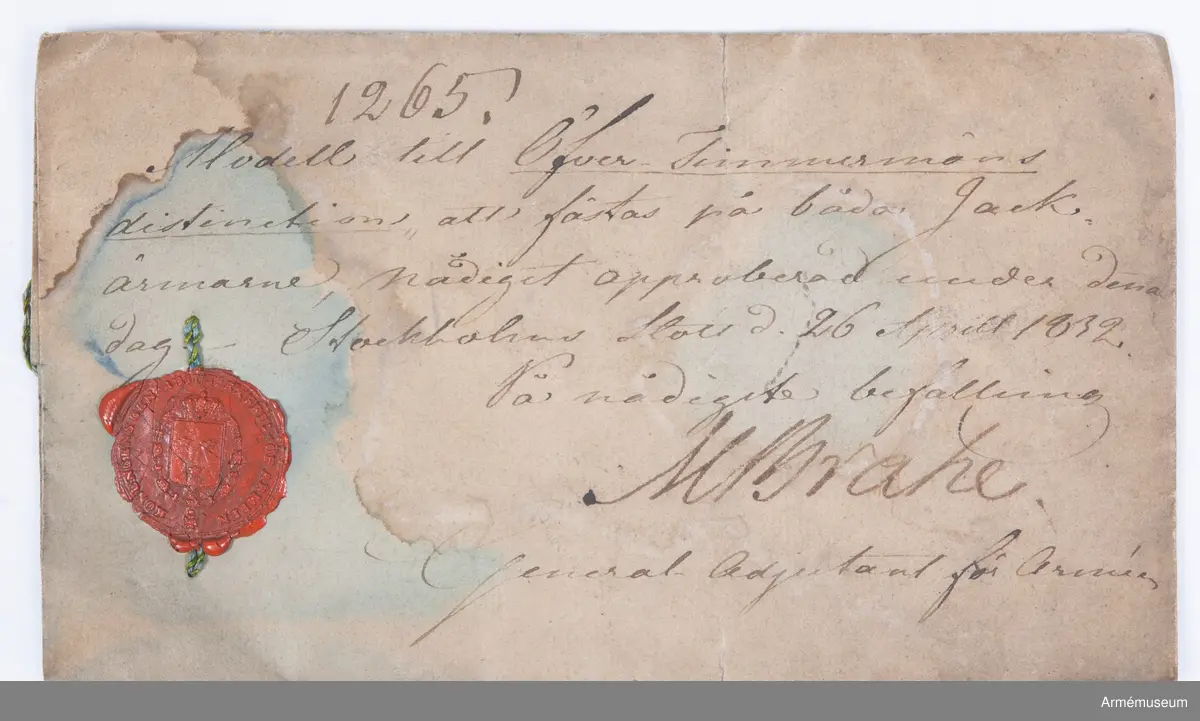 1265.
Modell till Öfver-Timmermäns
distinction, att fästas på båda Jack-
ärmarne, nådigst approberad under denna
dag – Stockholms Slott d. 26 Aprill 1832.
På nådigste befallning
MBrahe.
General-Adjutant för Arméen
Armémuseum